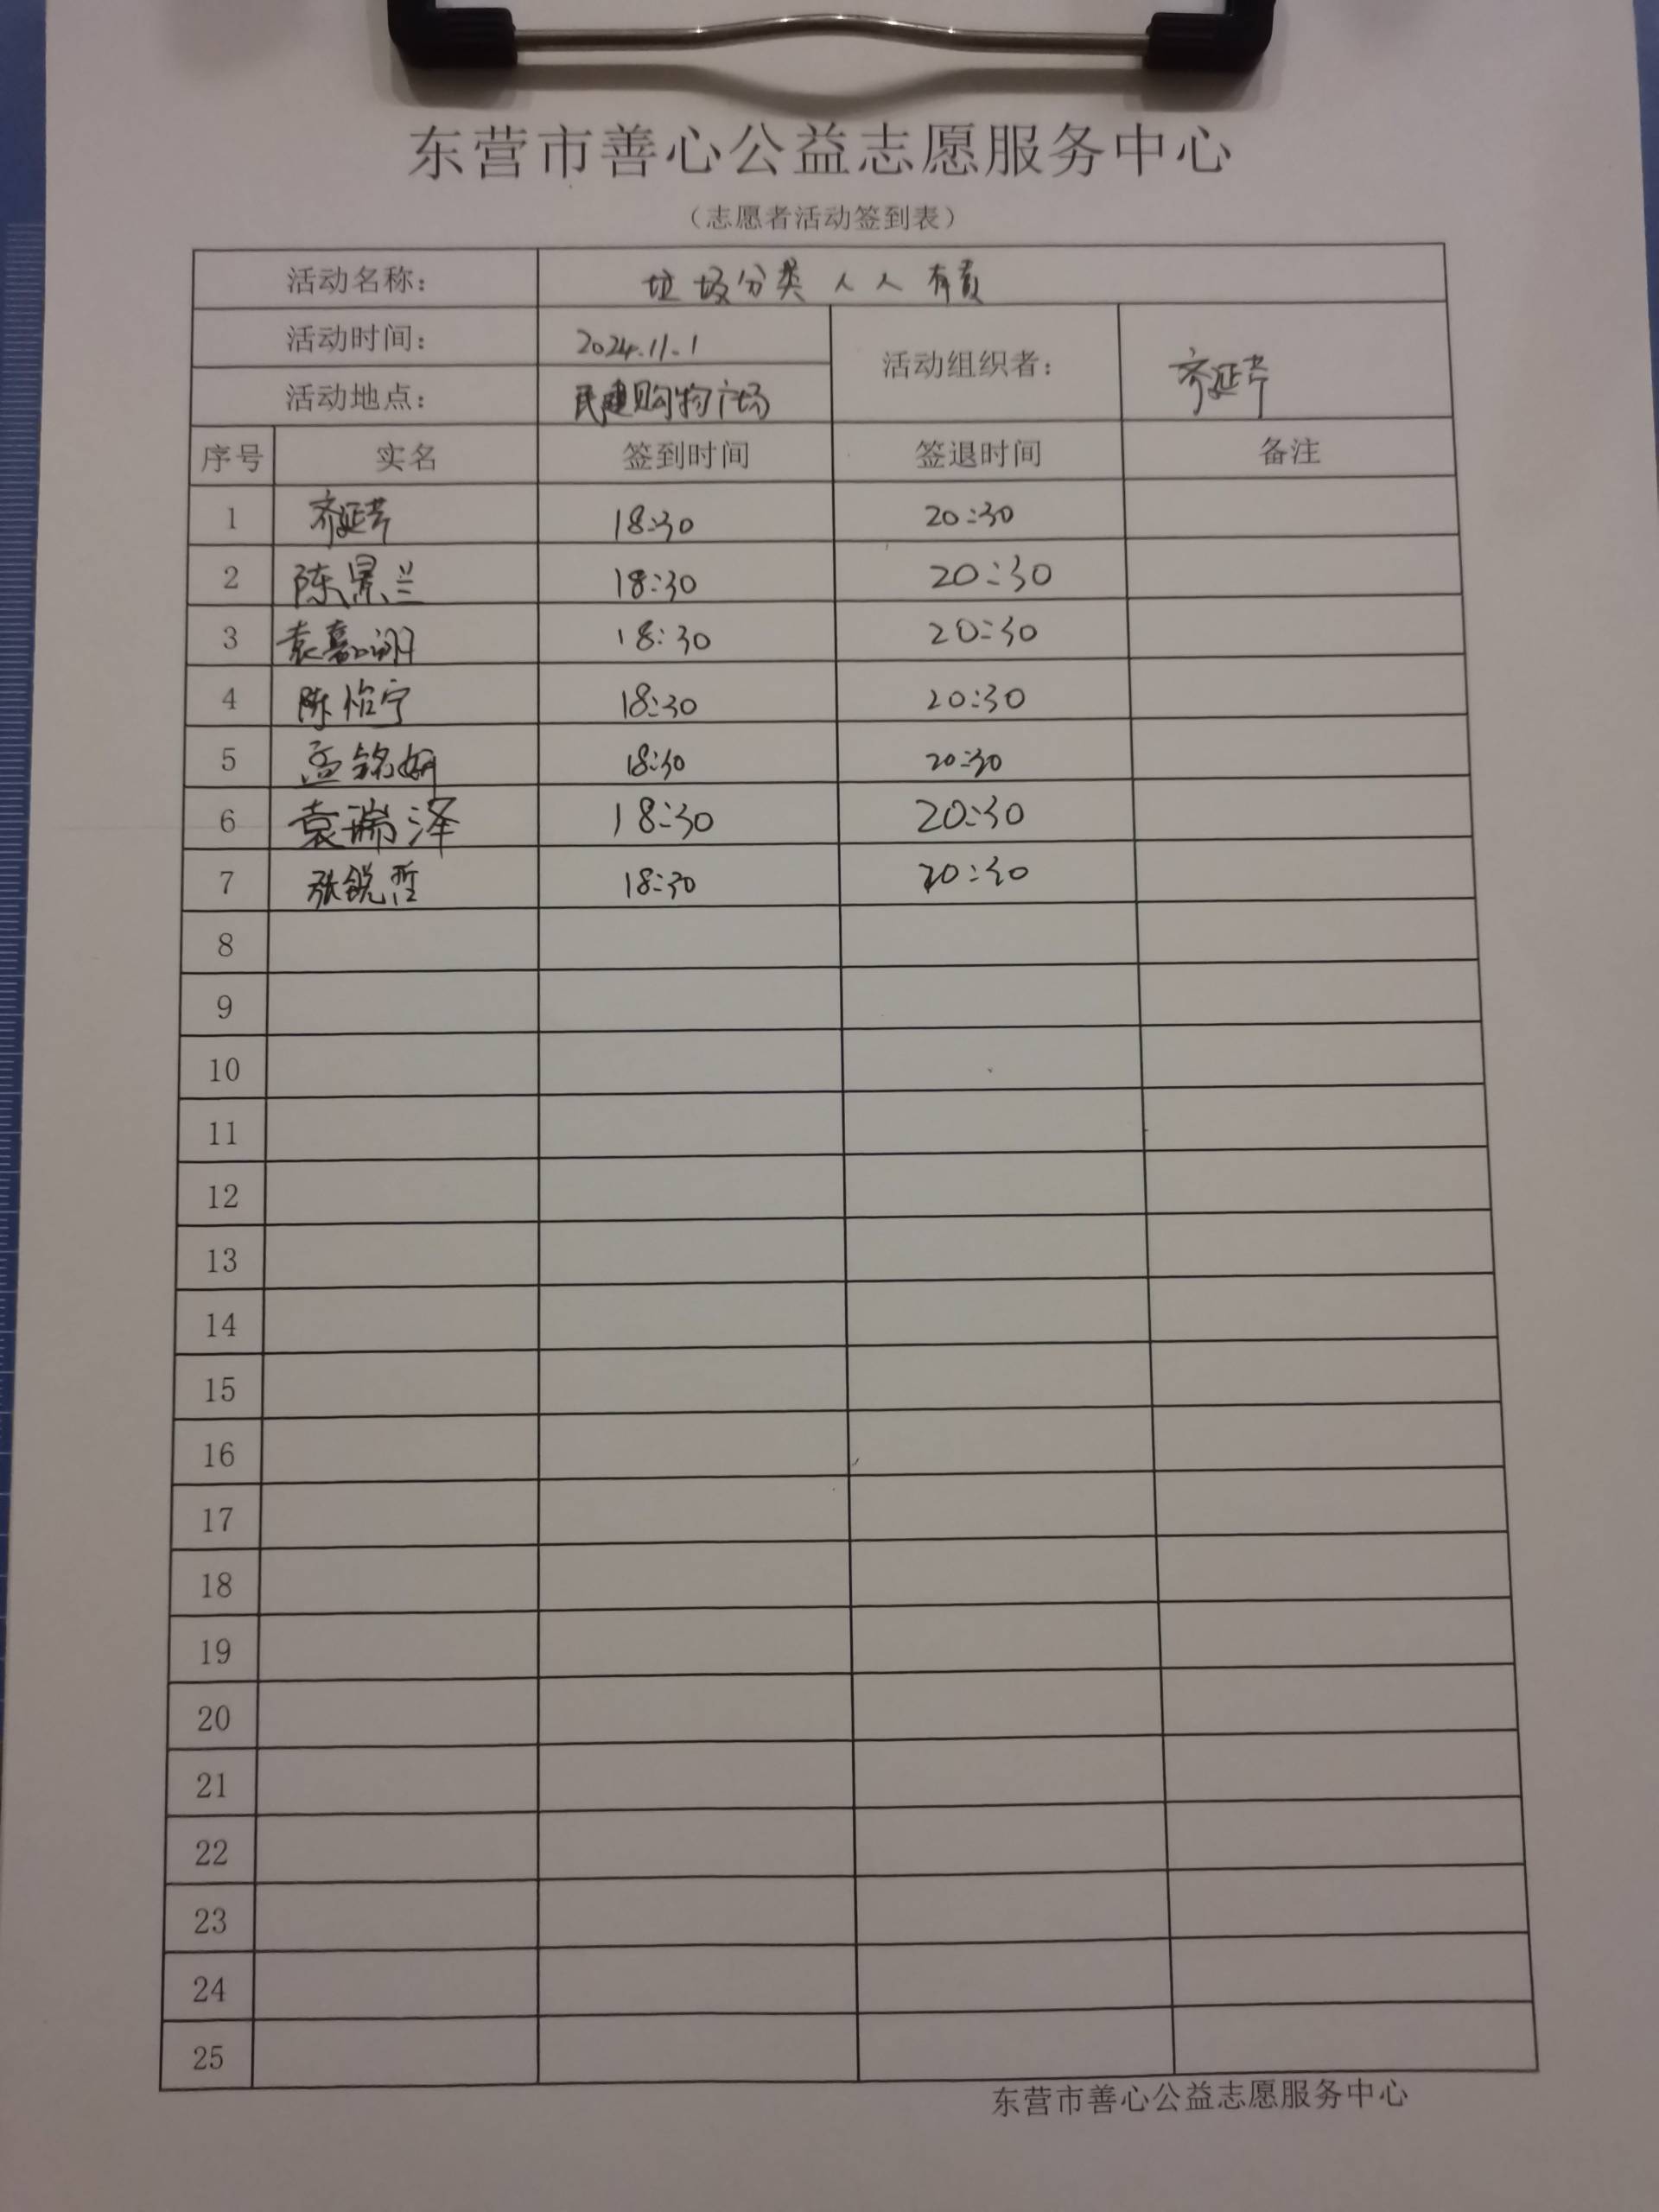 东营市善心公益志愿服务中心
（志愿者活动签到表）
活动名称： 垃圾分类人人有责
活动时间： 2024.11.1 活动组织者： 齐延芹
活动地点： 民建购物广场
序号 实名 签到时间 签退时间 备注
1 齐延芹 18:30 20:30
2 陈景兰 18:30 20:30
3 袁嘉 18:30 20:30
4 陈怡宁 18:30 20:30
5 孟铭妍 18:30 20:30
6 袁瑞泽 18:30 20:30
7 张锐哲 18:30 20:30
8
9
10
11
12
13
14
15
16
17
18
19
20
21
22
23
24
25
东营市善心公益志愿服务中心